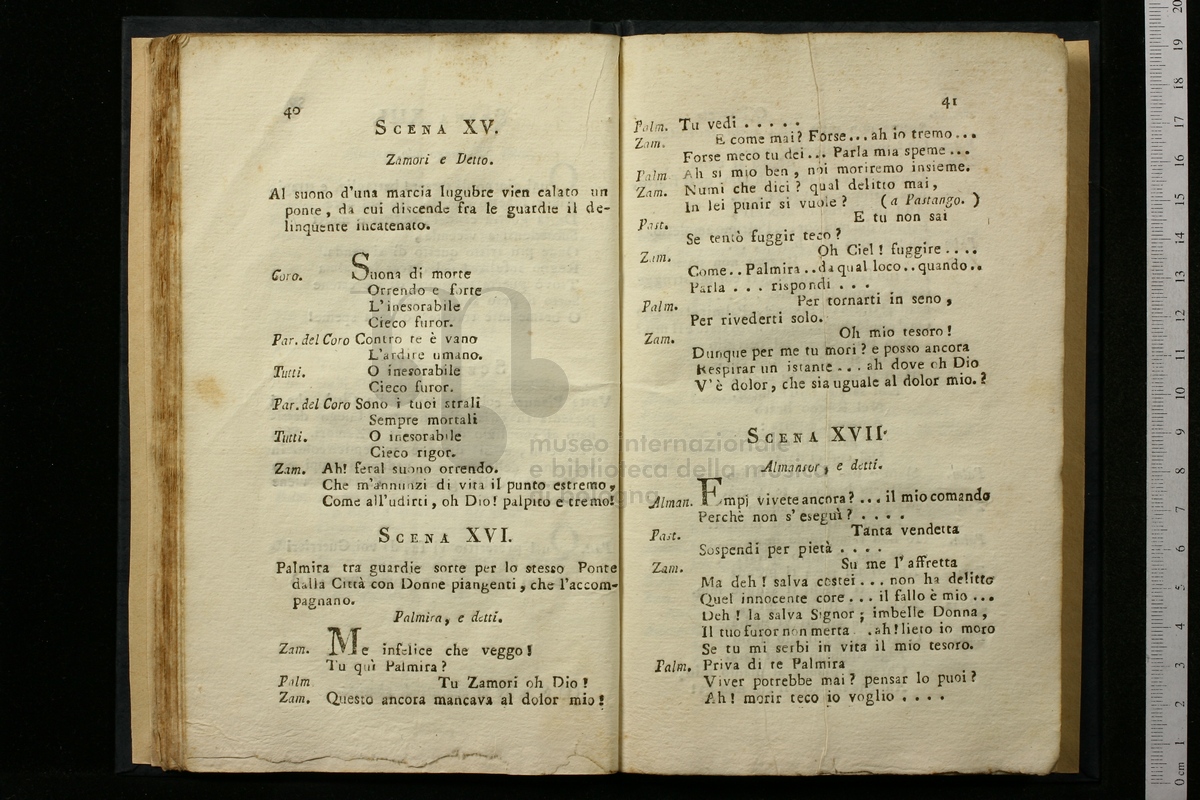 40
SCENA XV.
Zamori e Detto.
Al suono d'una marcia lugubre vien calato un
ponte, da cui discende fra le guardie il de-
linquente incatenato.
Coro. Suona di morte
Orrendo e forte
L'inesorabile
Cieco furor.
Par. del Coro Contro te è vano
L'ardire umano.
Tutti. O inesorabile
Cieco furor.
Par. del Coro Sono i tuoi strali
Sempre mortali
Tutti. O inesorabile
Cieco rigor.
Zam. Ah! feral suono orrendo.
Che m'annunzi di vita il punto estremo,
Come all'udirti, oh Dio! palpito e tremo!
SCENA XVI.
Palmira tra guardie sorte per lo stesso Ponte
dalla Città con Donne piangenti, che l'accom-
pagnano.
Palmira, e detti.
Zam. Me infelice che veggo!
Tu quì Palmira?
Palm Tu Zamori oh Dio!
Zam. Questo ancora mancava al dolor mio!
41
Palm. Tu vedi . . . . .
Zam. E come mai? Forse... ah io tremo...
Forse meco tu dei... Parla mia speme ...
Palm Ah si mio ben, noi moriremo insieme.
Zam. Numi che dici? qual delitto mai,
In lei punir si vuole? (a Pastango.)
Past. E tu non sai
Se tentò fuggir teco?
Zam. Oh Ciel! fuggire....
Come.. Palmira ..da qual loco..quando..
Parla . . . rispondi . . .
Palm. Per tornarti in seno,
Per rivederti solo.
Zam. Oh mio tesoro!
Dunque per me tu mori? e posso ancora
Respirar un istante ... ah dove oh Dio
V'è dolor, che sia uguale al dolor mio.?
SCENA XVII.
Almansor, e detti.
Alman. Empj vivete ancora? ... il mio comando
Perchè non s'eseguì? . . . .
Past. Tanta vendetta
Sospendi per pietà . . . .
Zam. Su me l'affretta
Ma deh! salva costei... non ha delitto
Quel innocente core... il fallo è mio ...
Deh! la salva Signor; imbelle Donna,
Il tuo furor non merta . .ah! lieto io moro
Se tu mi serbi in vita il mio tesoro.
Palm. Priva di te Palmira
Viver potrebbe mai? pensar lo puoi?
Ah! morir teco io voglio . . . .
museo internazionale
e biblioteca della musica
di bologna
0 cm 1 2 3 4 5 6 7 8 9 10 11 12 13 14 15 16 17 18 19 20